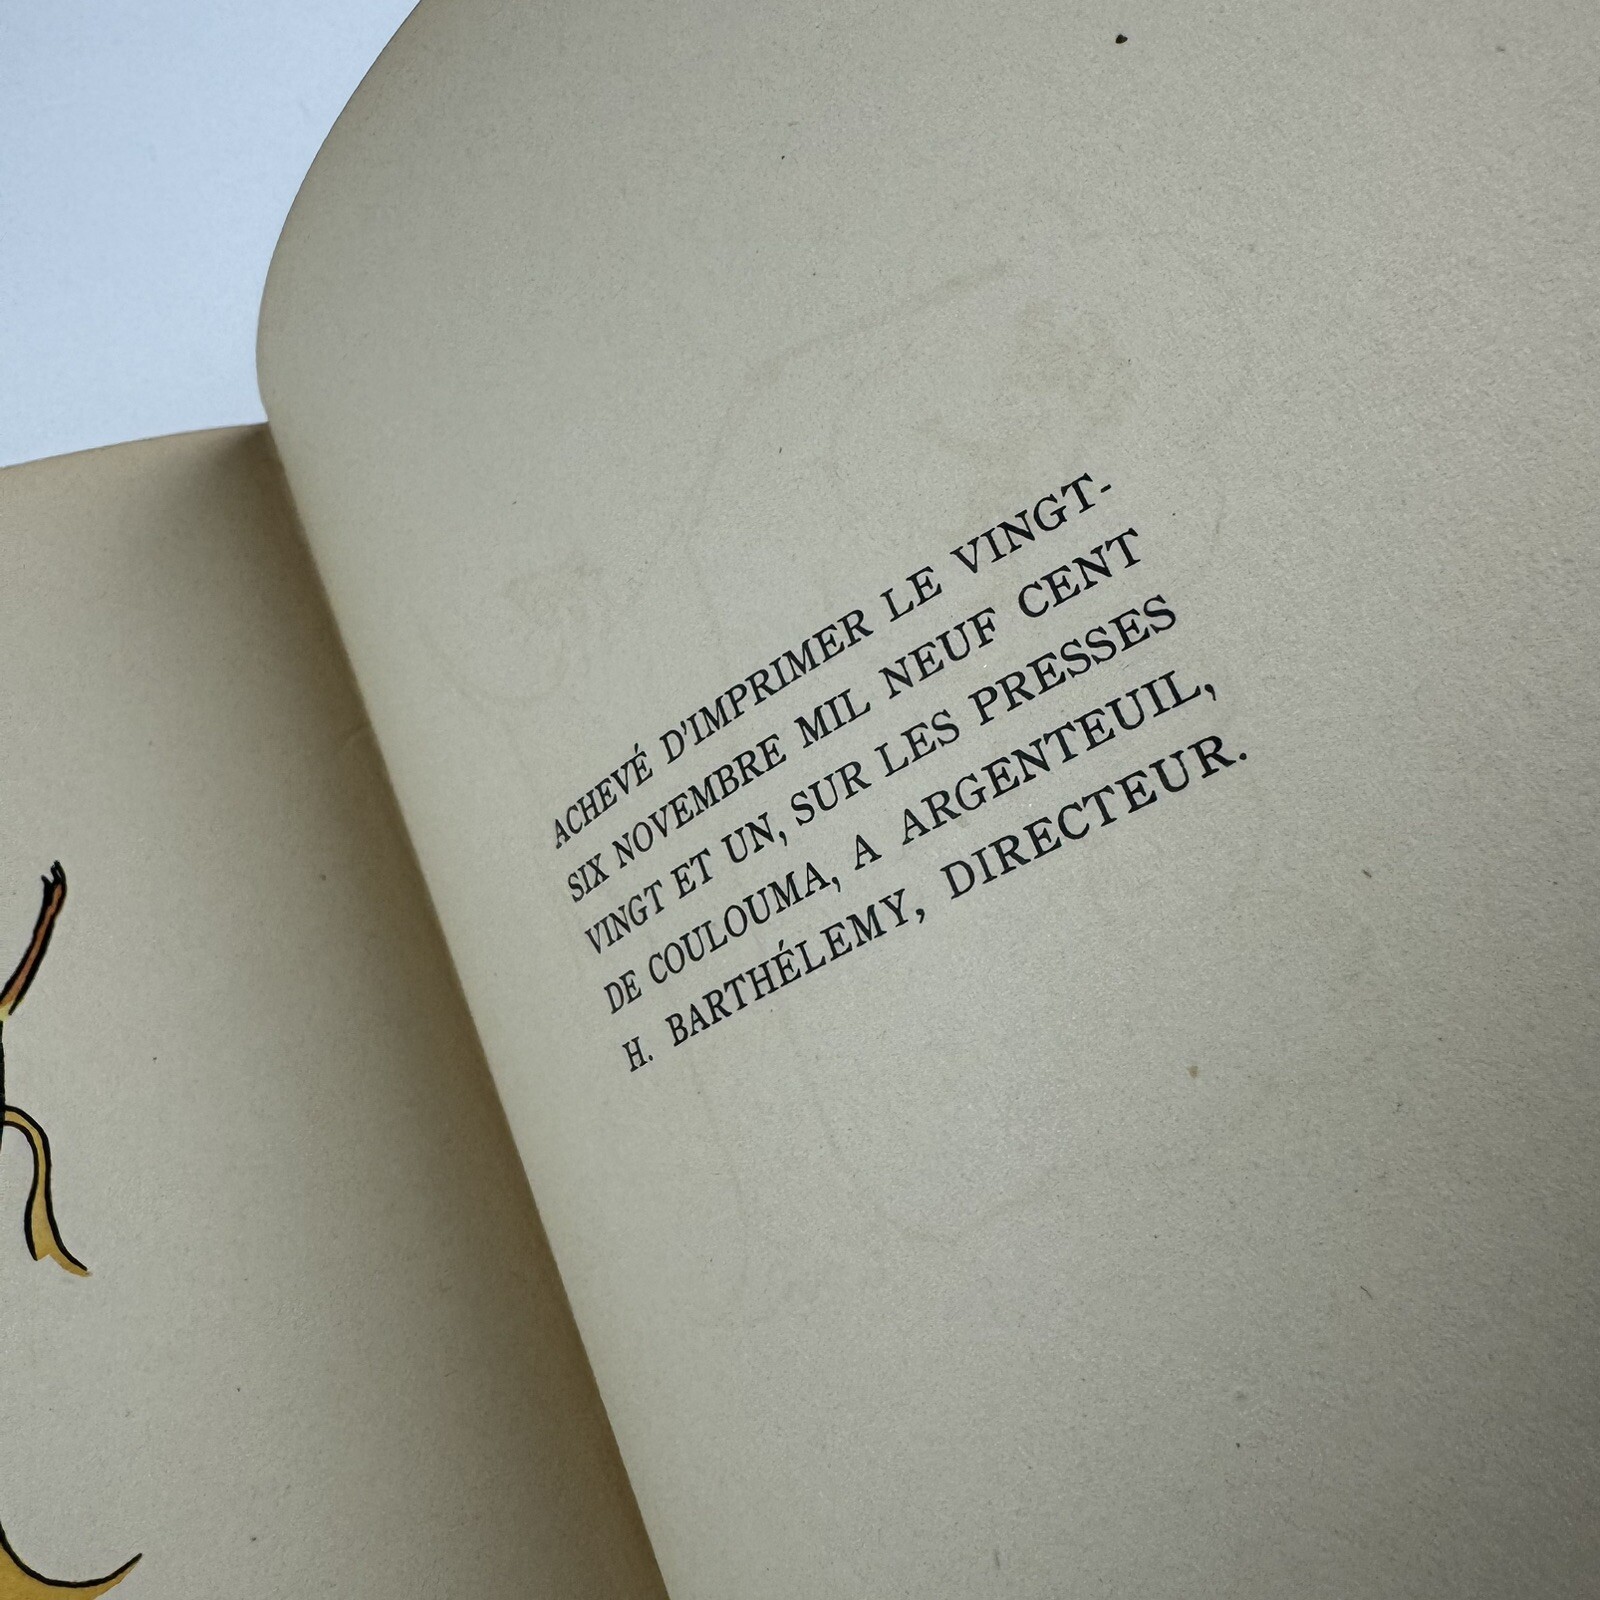 ACHEVÉ D'IMPRIMER LE VINGT-
SIX NOVEMBRE MIL NEUF CENT
VINGT ET UN, SUR LES PRESSES
DE COULOUMA, A ARGENTEUIL,
H. BARTHÉLEMY, DIRECTEUR.